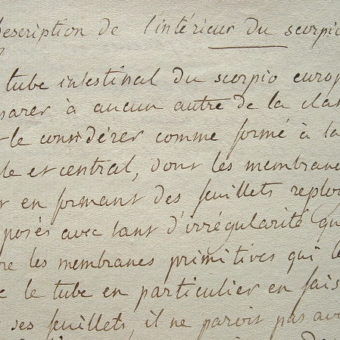 description de l'intérieur du scorpio
tube intestinal du scorpio europ
parer à aucun autre de la clas
-le considérer comme formé à la
le et central, dont les membrane
r en formant des feuillets reploy
posés avec tant d'irrégularité qu
re les membranes primitives qui le
le tube en particulier en fais
ses feuillets, il ne paroit pas av